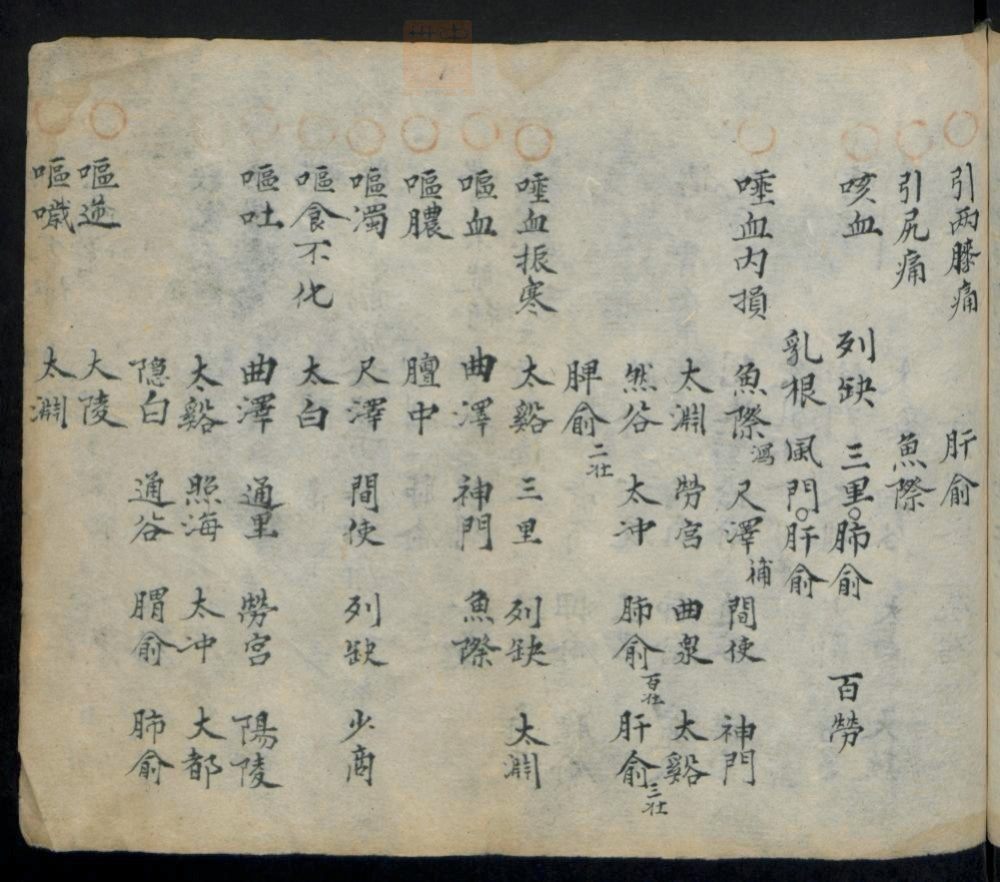 引两膝痛 肝俞
引尻痛 魚際
咳血 列缺 三里 肺俞 百勞
乳根 風門 肝俞
唾血内損 魚際瀉 尺澤補 間使 神門
太淵 勞宮 曲泉 太谿
然谷 太冲 肺俞百壮 肝俞三壮
脾俞二壮
唾血振寒 太谿 三里 列缺 太淵
嘔血 曲澤 神門 魚際
嘔膿 膻中
嘔濁 尺澤 間使 列缺 少商
嘔食不化 太白
嘔吐 曲澤 通里 勞宮 陽陵
太谿 照海 太冲 大都
隠白 通谷 胃俞 肺俞
嘔逆 大陵
嘔噦 太淵